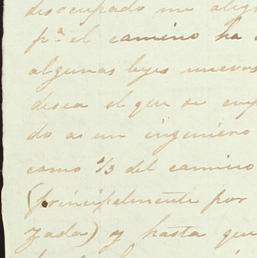 desocupado me aleg
pra el camino ha
algunas leyes nuevas
desea el que se emp
do a un ingeniero
como 1/3 del camino
(principalmente por
zada) y hasta que